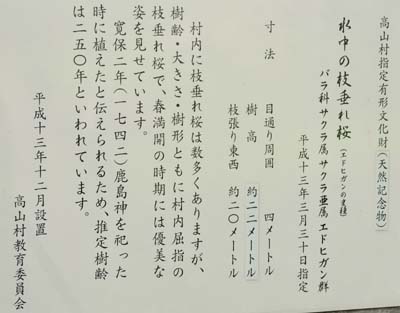 高山村指定有形文化財(天然記念物)
水中の枝垂れ桜(エドヒガンの変種)
バラ科サクラ属サクラ亜属エドヒガン群
平成十三年三月三十日指定
寸法 目通り周囲 四メートル
樹高 約二二メートル
枝張り東西 約二〇メートル
村内に枝垂れ桜は数多くありますが、
樹齢・大きさ・樹形ともに村内屈指の
枝垂れ桜で、春満開の時期には優美な
姿を見せています。
寛保二年(一七四二)鹿島神を祀った
時に植えたと伝えられるため、推定樹齢
は二五〇年といわれています。
平成十三年十二月設置
高山村教育委員会